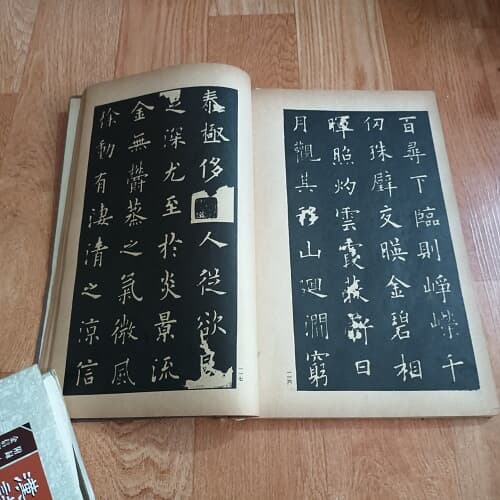 百尋下臨則崢嶸千
仞珠璧交暎金碧相
暉照灼雲霞蔽虧日
月觀其移山迴澗窮
一一六
泰極侈人從欲良
深尤至於炎景流
金無鬱蒸之氣微風
徐動有凄清之涼信
一一七
漢